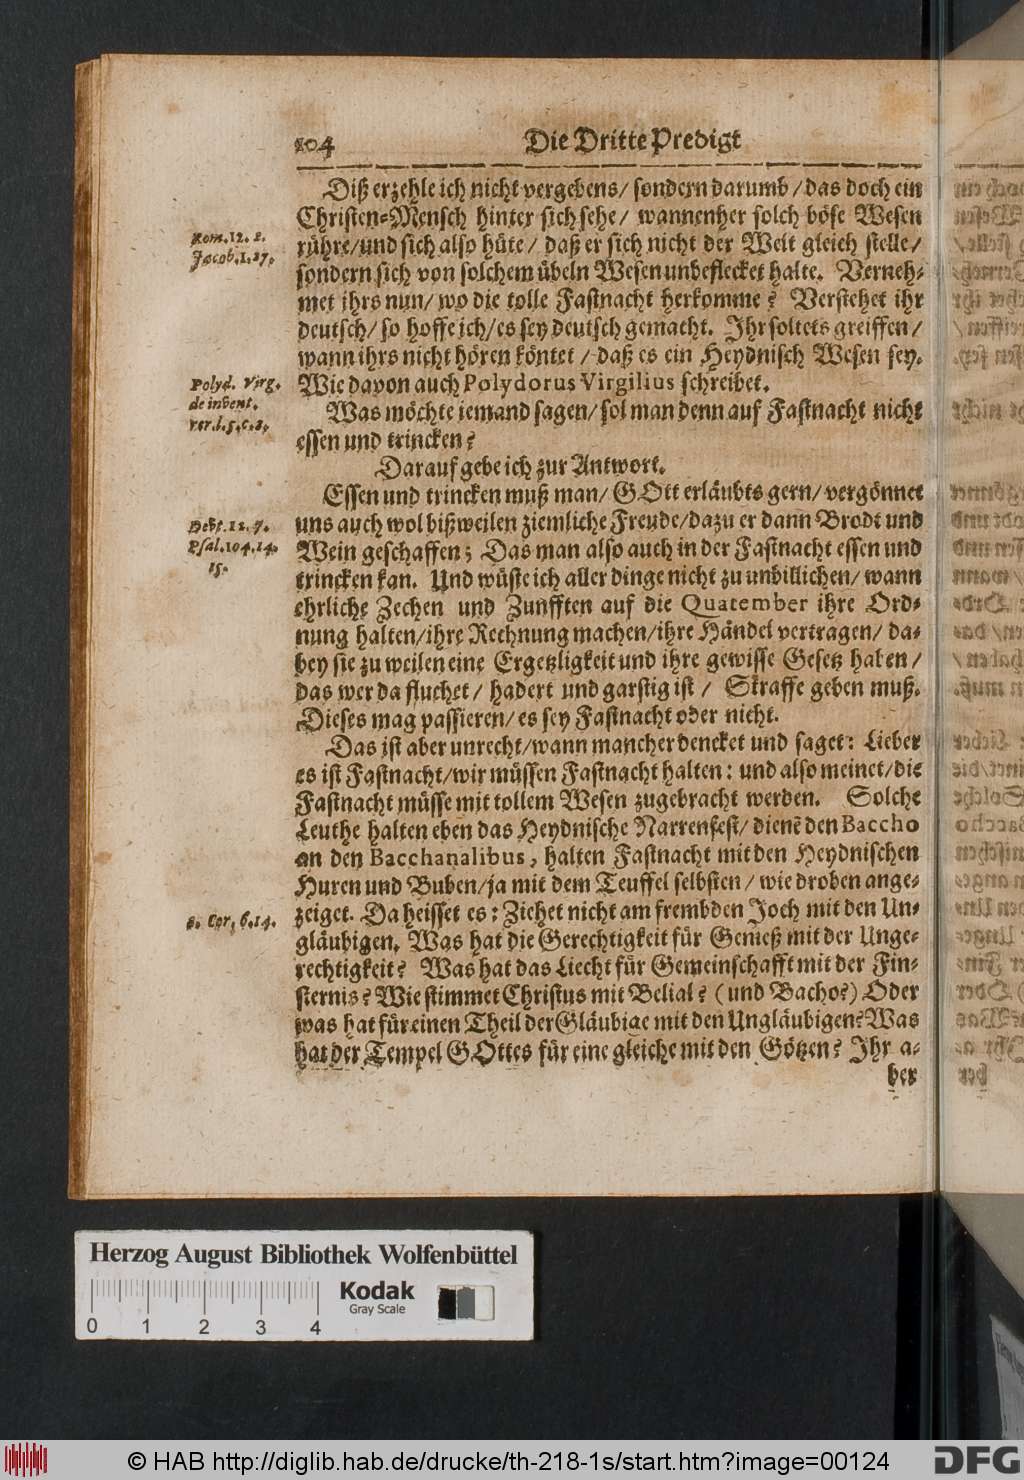 104 Die Dritte Predigt
Diß erzehle ich nicht vergebens/ sondern darumb/ das doch ein
Christen-Mensch hinter sich sehe/ wannenher solch böse Wesen
Rom. 12. 2.
rühre/und sich also hüte/ daß er sich nicht der Welt gleich stelle/
Jacob. 1. 27.
sondern sich von solchem übeln Wesen unbeflecket halte. Verneh-
met ihrs nun/ wo die tolle Fastnacht herkomme? Verstehet ihr
deutsch/ so hoffe ich/ es sey deutsch gemacht. Ihr soltets greiffen/
wann ihrs nicht hören köntet/ daß es ein Heydnisch Wesen sey.
Polyd. Virg.
Wie davon auch Polydorus Virgilius schreibet.
de invent.
Was möchte iemand sagen/ sol man denn auf Fastnacht nicht
rer. l. 5. c. 2.
essen und trincken?
Darauf gebe ich zur Antwort.
Essen und trincken muß man/ GOtt erläubts gern/ vergönnet
Debt. 12. 7.
uns auch wol bißweilen ziemliche Freude/dazu er dann Brodt und
Psal. 104. 14.
Wein geschaffen; Das man also auch in der Fastnacht essen und
15.
trincken kan. Und wüste ich aller dinge nicht zu unbillichen/ wann
ehrliche Zechen und Zunfften auf die Quatember ihre Ord-
nung halten/ihre Rechnung machen/ihre Händel vertragen/ da-
bey sie zu weilen eine Ergetzligkeit und ihre gewisse Gesetz haben/
das wer da fluchet/ hadert und garstig ist/ Straffe geben muß.
Dieses mag passieren/ es sey Fastnacht oder nicht.
Das ist aber unrecht/wann mancher dencket und saget: Lieber
es ist Fastnacht/wir müssen Fastnacht halten: und also meinet/die
Fastnacht müsse mit tollem Wesen zugebracht werden. Solche
Leuthe halten eben das Heydnische Narrenfest/ dienē den Baccho
an den Bacchanalibus, halten Fastnacht mit den Heydnischen
Huren und Buben/ja mit dem Teuffel selbsten/ wie droben ange-
2. Cor. 6. 14.
zeiget. Da heisset es: Ziehet nicht am frembden Joch mit den Un-
gläubigen. Was hat die Gerechtigkeit für Genieß mit der Unge-
rechtigkeit? Was hat das Liecht für Gemeinschafft mit der Fin-
sternis? Wie stimmet Christus mit Belial? (und Bacho?) Oder
was hat für einen Theil der Gläubige mit den Ungläubigen? Was
hat der Tempel GOttes für eine gleiche mit den Götzen? Ihr a-
ber
Herzog August Bibliothek Wolfenbüttel
Kodak
Gray Scale
0 1 2 3 4
© HAB http://diglib.hab.de/drucke/th-218-1s/start.htm?image=00124
DFG